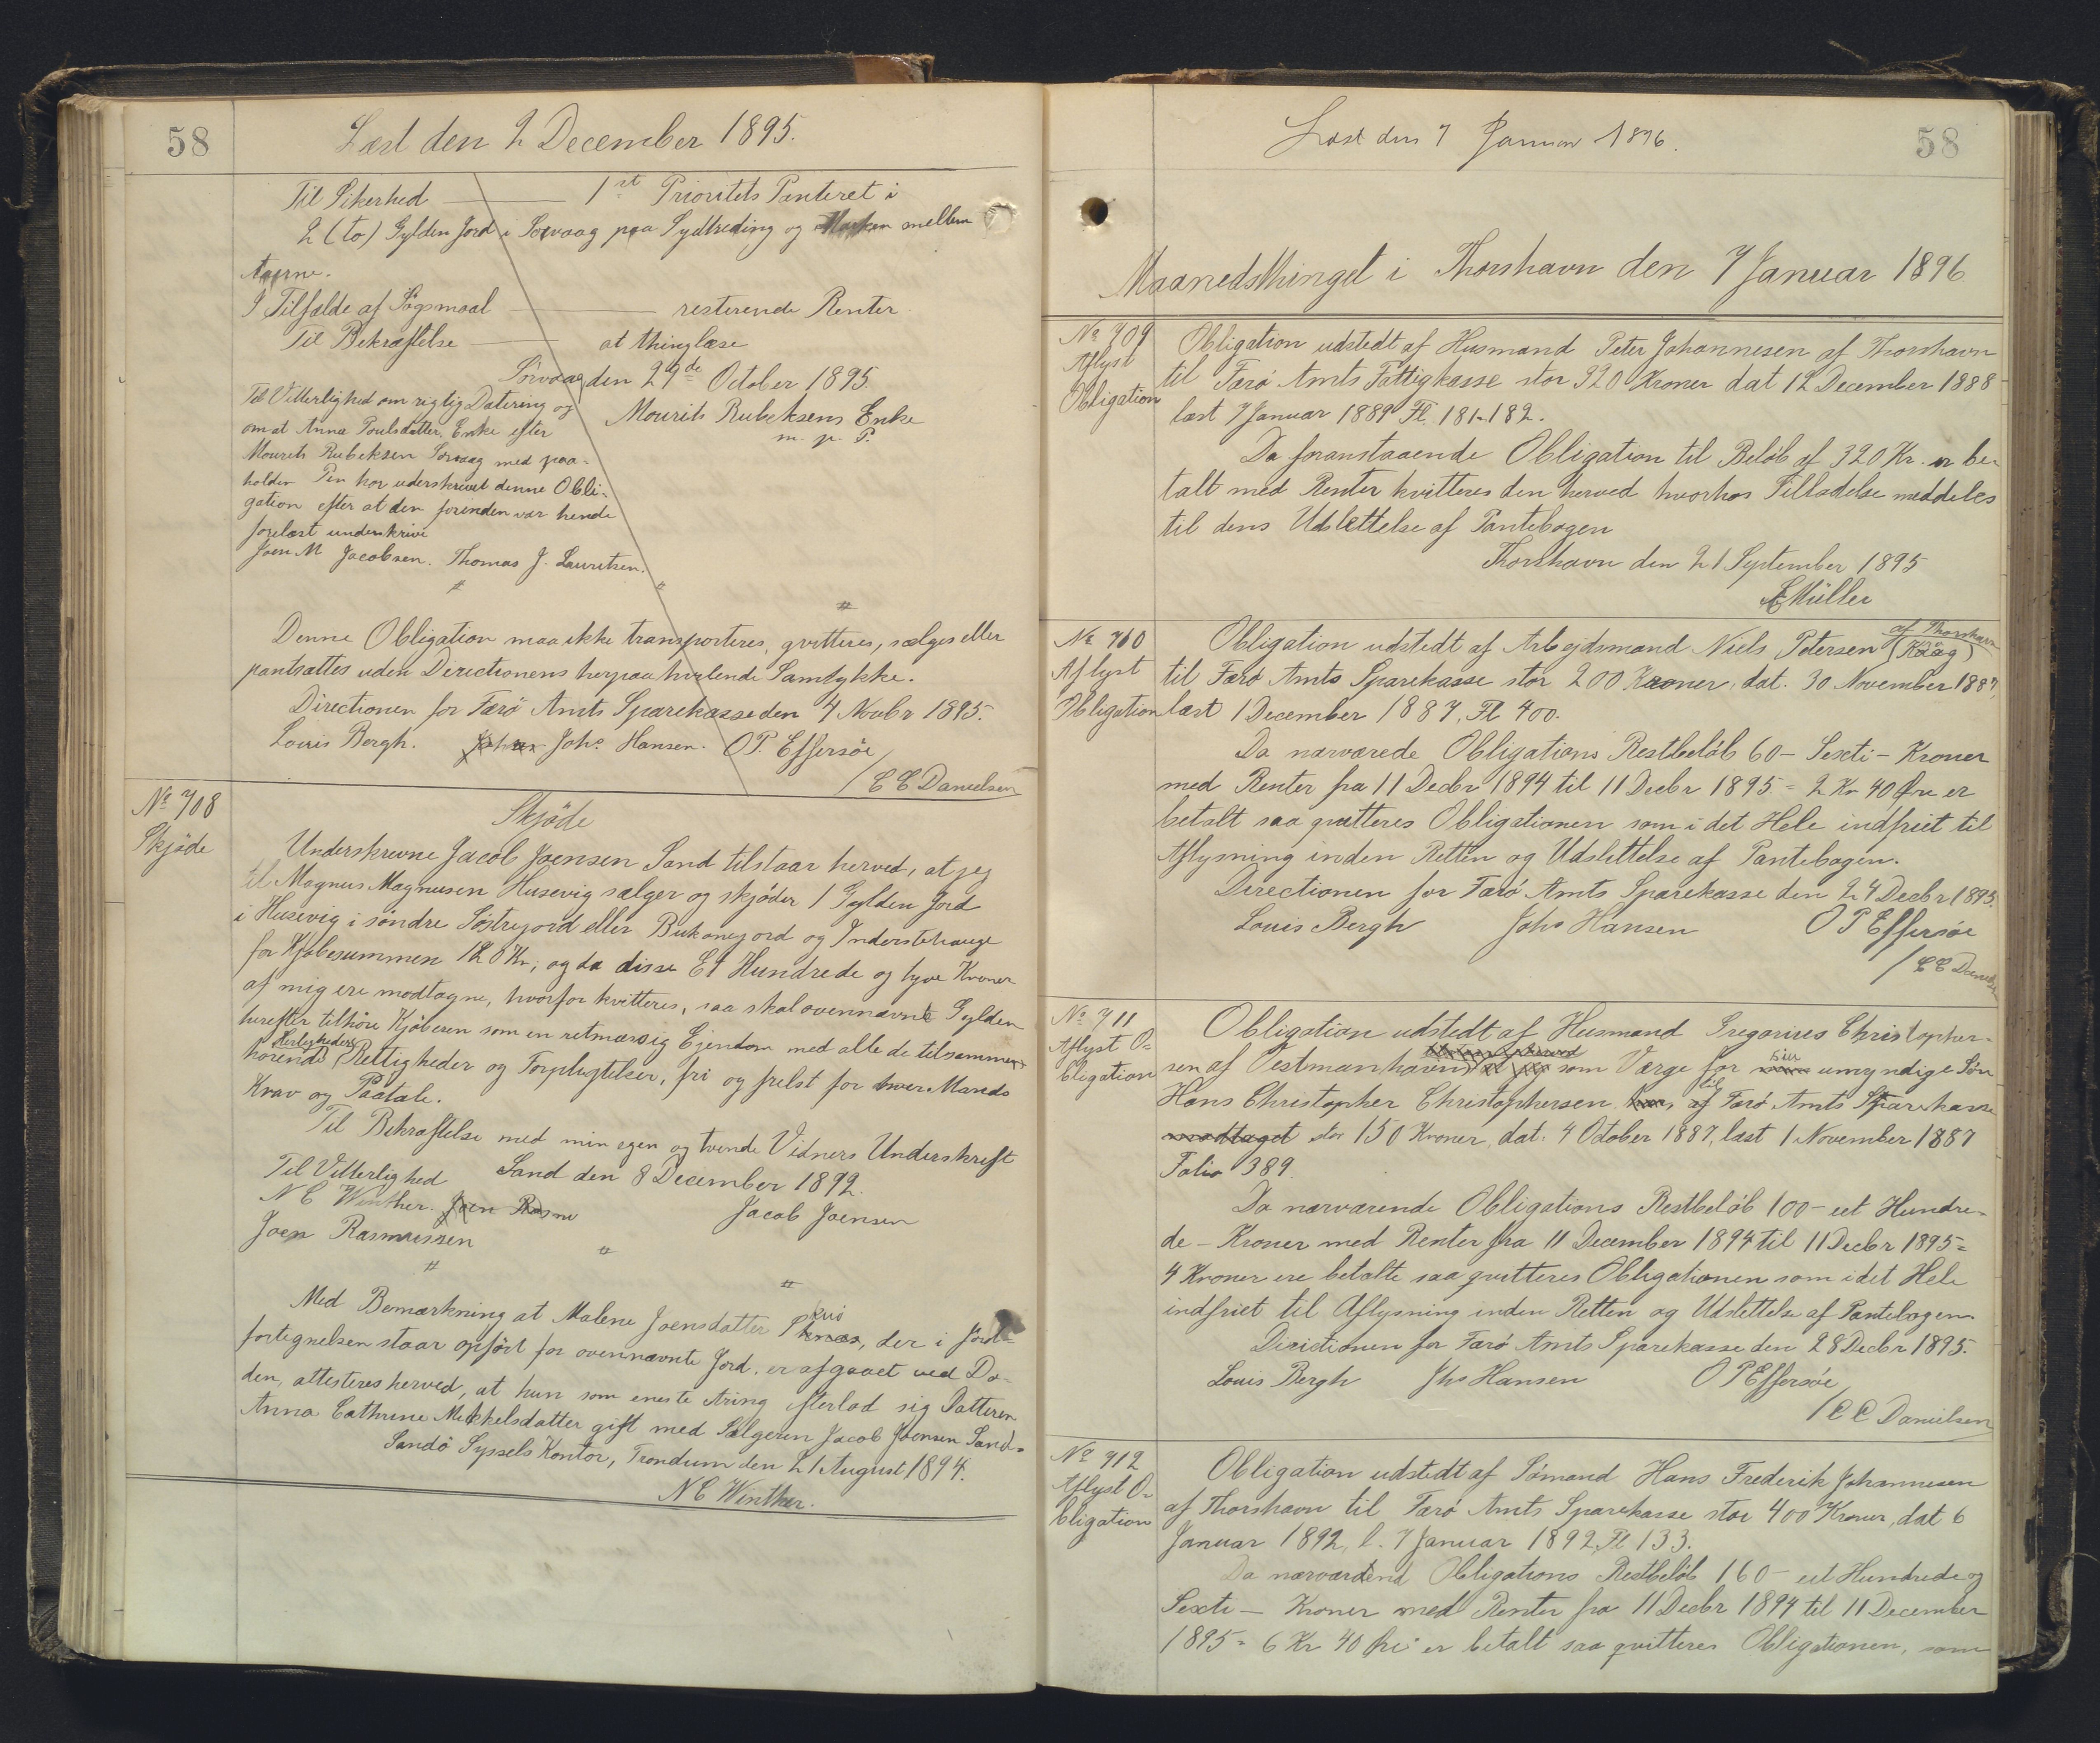 58
Læst den 2 December 1895.
Til Sikerhed — 1st Prioritets Panteret i
2 (to) Gylden Jord i Sorvaag paa Sydtreding og Marken mellem
Aaerne.
I Tilfælde af Søgsmaal — resterende Renter
Til Bekræftelse — at thinglæse
Sörvaag den 29de October 1895.
Mourits Rubeksens Enke
m. p. P.
Til Vitterlighed om rigtig Datering og
om at Anna Poulsdatter, Enke efter
Mourits Rubeksen Sorvaag med paa-
holden Pen har underskrevet denne Obli-
gation efter at den forinden var hende
forelæst underskrive
Joen M Jacobsen. Thomas J. Lauritsen.
Denne Obligation maa ikke transporteres, qvitteres, sælges eller
pantsættes uden Directionens herpaa hvilende Samtykke.
Directionen for Færö Amts Sparekasse den 4 Novbr 1895.
Louis Bergh. Johs. Hansen. O P. Effersöe
/ C C Danielsen
No 708
Skjöde
Skjöde
Underskrevne Jacob Joensen Sand tilstaar herved, at jeg
til Magnus Magnusen Husevig sælger og skjöder 1 Gylden Jord
i Husevig i söndre Söstrejord eller Bükonejord og Inderstehauge
for Kjöbesummen 120 Kr, og da disse Et Hundrede og tyve Kroner
af mig ere modtagne, hvorfor kvitteres, saa skal ovennævnte Gylden
herefter tilhöre Kjöberen som en retmæssig Ejendom med alle de tilsammen
hörende Herligheder Rettigheder og Forpligtelser, fri og frelst for hver Mands
Krav og Paatale.
Til Bekræftelse med min egen og tvende Vidners Underskrift
Sand den 8 December 1892.
Til Vitterlighed
N C Winther. Joen Rasmu
Jacob Joensen
Joen Rasmussen
Med Bemærkning at Malene Joensdatter, der i Jord-
fortegnelsen staar opfört for ovennævnte Jord, er afgaaet ved Dö-
den, attesteres herved, at hun som eneste Arving efterlod sig Datteren
Anna Cathrine Mikkelsdatter gift med Sælgeren Jacob Joensen Sand.
Sandö Syssels Kontor, Trondum den 21 August 1894.
N C Winther.
Læst den 7 Januar 1896.
58
Maanedsthinget i Thorshavn den 7 Januar 1896
No 709
Aflyst
Obligation
Obligation udstedt af Husmand Peter Johannesen af Thorshavn
til Færö Amts Fattigkasse stor 320 Kroner dat 12 December 1888
læst 7 Januar 1889 Fl. 181-182.
Da foranstaaende Obligation til Belöb af 320 Kr. er be-
talt med Renter kvitteres den herved hvorhos Tilladelse meddeles
til dens Udslettelse af Pantebogen
Thorshavn den 21 September 1895
E Müller
No 710
Aflyst
Obligation
Obligation udstedt af Arbejdsmand Niels Petersen (Kaag) af Thorshavn
til Færö Amts Sparekasse stor 200 Kroner, dat. 30 November 1887,
læst 1 December 1887, Fl 400.
Da nærværede Obligations Restbelöb 60 – Sexti – Kroner
med Renter fra 11 Decbr 1894 til 11 Decbr 1895 = 2 Kr 40 Öre er
betalt saa qvitteres Obligationen som i det Hele indfriet til
Aflysning inden Retten og Udslettelse af Pantebogen.
Directionen for Færö Amts Sparekasse den 24 Decbr 1895.
Louis Bergh Johs Hansen O P Effersöe
/ C C Danielsen
No 711
Aflyst O-
bligation
Obligation udstedt af Husmand Gregorius Christopher-
sen af Vestmanhavn som Værge for sin umyndige Sön
Hans Christopher Christophersen til Færö Amts Sparekasse
modtaget stor 150 Kroner, dat. 4 October 1887, læst 1 November 1887
Folio 389.
Da nærværende Obligations Restbelöb 100 – et Hundre-
de – Kroner med Renter fra 11 December 1894 til 11 Decbr 1895 =
4 Kroner ere betalte saa qvitteres Obligationen som i det Hele
indfriet til Aflysning inden Retten og Udslettelse af Pantebogen.
Directionen for Færö Amts Sparekasse den 28 Decbr 1895.
Louis Bergh Johs Hansen O P Effersöe
/ C C Danielsen
No 712
Aflyst O-
bligation
Obligation udstedt af Sömand Hans Frederik Johannesen
af Thorshavn til Færö Amts Sparekasse stor 400 Kroner, dat 6
Januar 1892, l. 7 Januar 1892, Fl 133.
Da nærværend Obligations Restbelöb 160 – et Hundrede og
Sexti – Kroner med Renter fra 11 Decbr 1894 til 11 December
1895 = 6 Kr 40 Öre er betalt saa qvitteres Obligationen, som